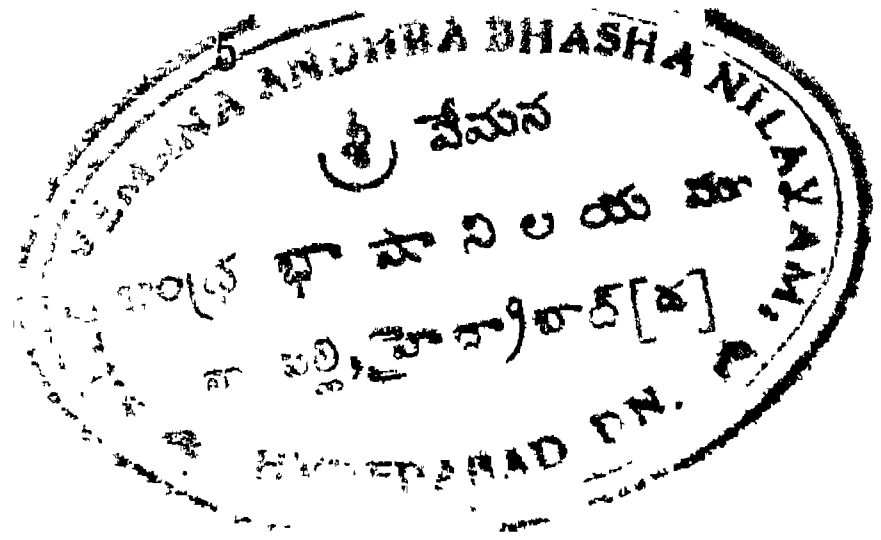 5
VEMANA ANDHRA BHASHA NILAYAM,
శ్రీ వేమన
ఆంధ్ర భాషా నిలయము
హైదరాబాద్ [ద]
HYDERABAD DN.